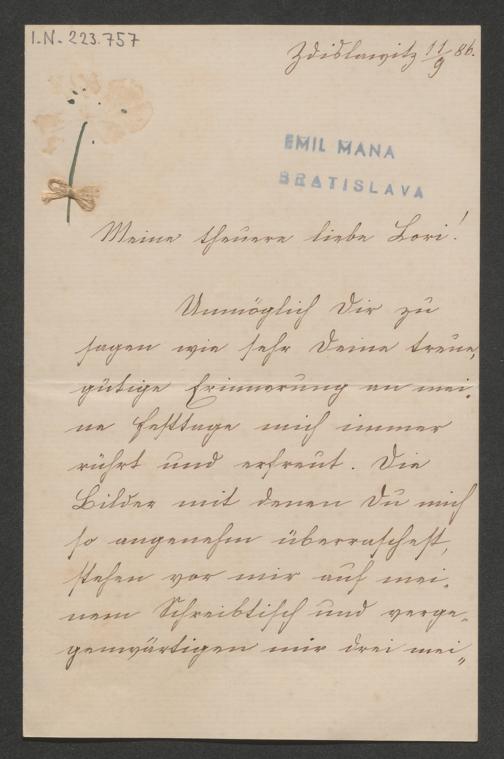 I.N. 223.757
Zdislawitz 11/9 86.
EMIL MANA
BRATISLAVA
Meine theuere liebe Lori!
Unmöglich Dir zu
sagen wie sehr Deine treue,
gütige Erinnerung an mei-
ne Festtage mich immer
rührt und erfreut. Die
Bilder mit denen Du mich
so angenehm überraschest,
stehen vor mir auf mei-
nem Schreibtisch und verge-
genwärtigen mir drei mei-